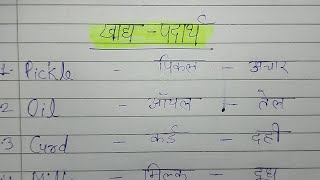 खाद्य - पदार्थ
1. Pickle - पिकल - अचार
2 Oil - ऑयल - तेल
3 Curd - कर्ड - दही
4 Milk - मिल्क - दूध